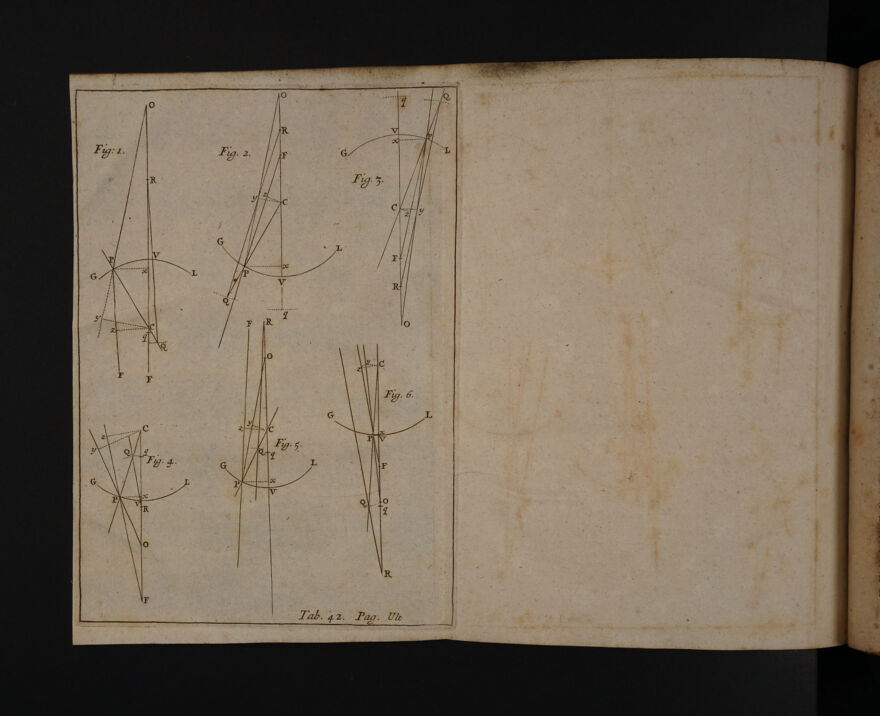 Fig: 1.
O
R
P
V
G
x
L
y
z
C
q
Q
F
F
Fig. 2.
O
R
F
y
z
C
G
L
P
x
V
Q
q
Fig. 3.
q
Q
V
x
P
G
L
C
z
y
F
R
O
Fig. 4.
C
z
y
Q
q
G
L
P
x
V
R
O
F
Fig. 5.
F
R
O
z
y
C
Q
q
G
L
P
x
V
Fig. 6.
z
C
G
L
P
V
F
Q
O
q
R
Tab. 42. Pag. Ult